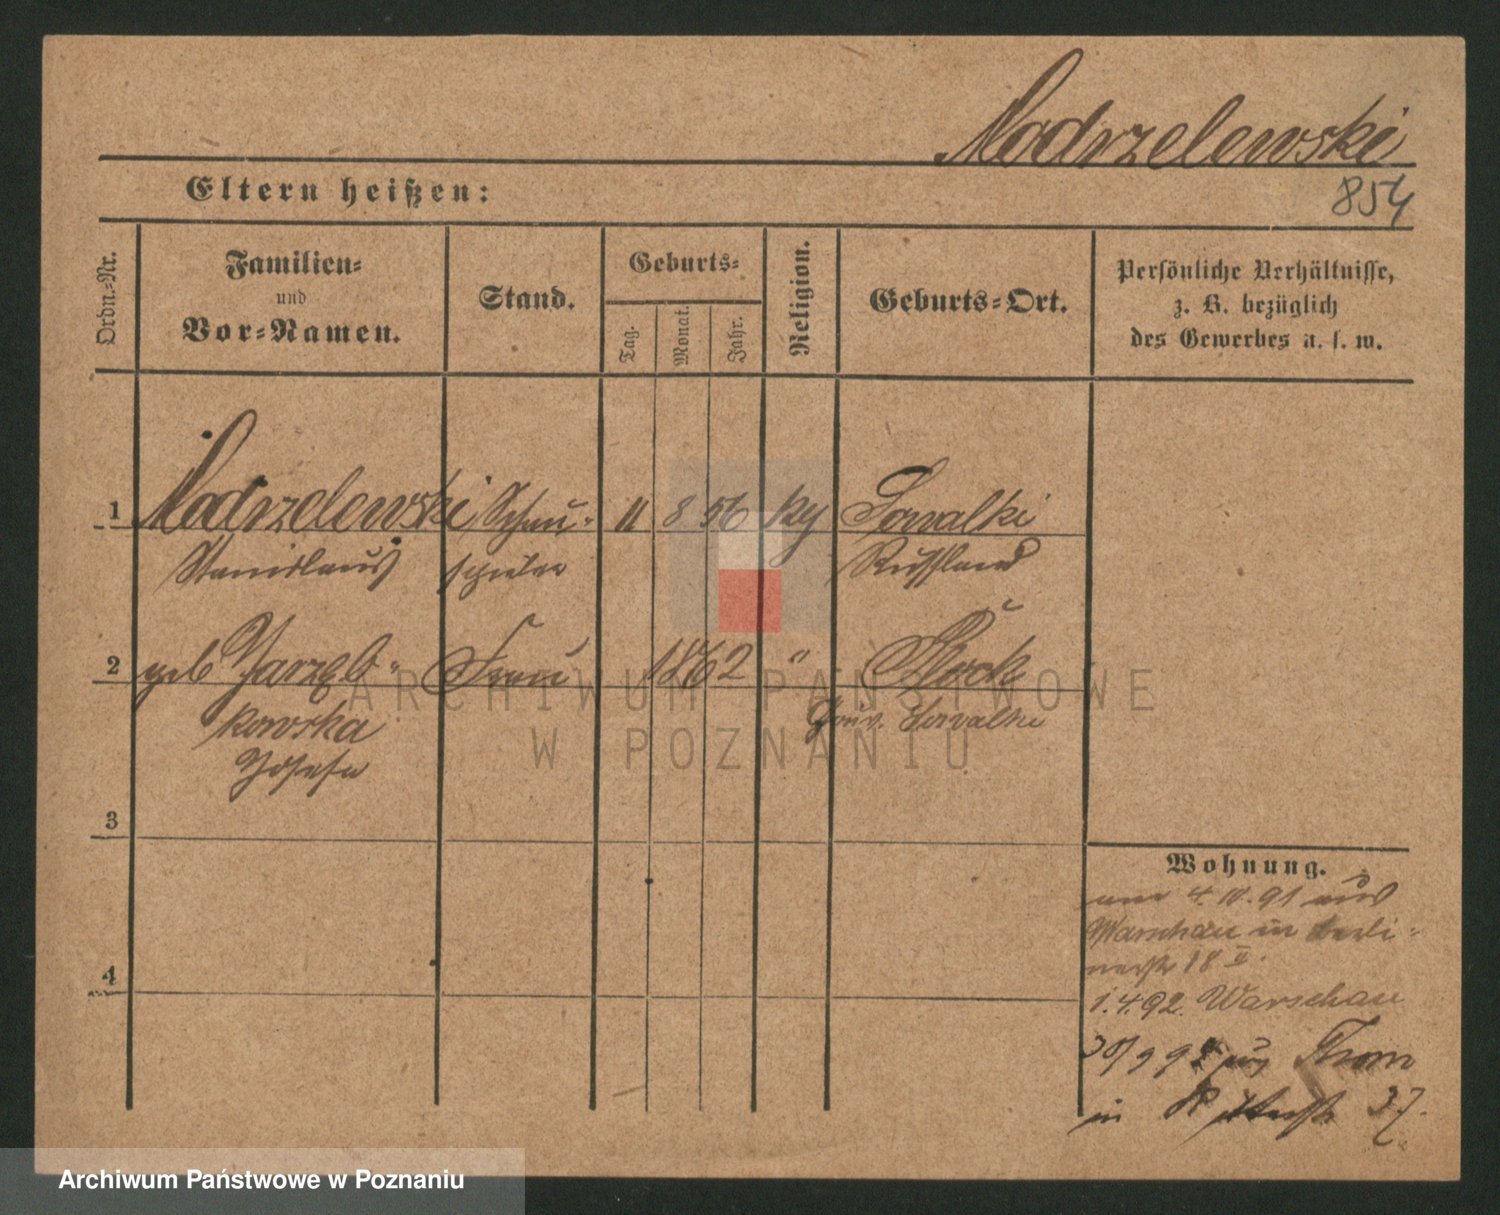 Nadrzelewski
Eltern heißen:
854
Ordn.-Nr.
Familien-
und
Vor-Namen.
Stand.
Geburts-
Tag.
Monat.
Jahr.
Religion.
Geburts-Ort.
Persönliche Verhältnisse,
z. B. bezüglich
des Gewerbes u. s. w.
1 Nadrzelewski Schau- 11 8 56 Suwalki
Stanislaus spieler Russland
2 geb Jarzęb- Frau 1862 "
kowska Gouv. Suwalki
Josefa
3
4
Wohnung.
am 4. IV. 91 aus
Warschau in Berli-
nerstr 18 II.
1.4.92. Warschau
30/9 92 aus Thorn
in Ritterstr 37.
ARCHIWUM PAŃSTWOWE
W POZNANIU
Archiwum Państwowe w Poznaniu